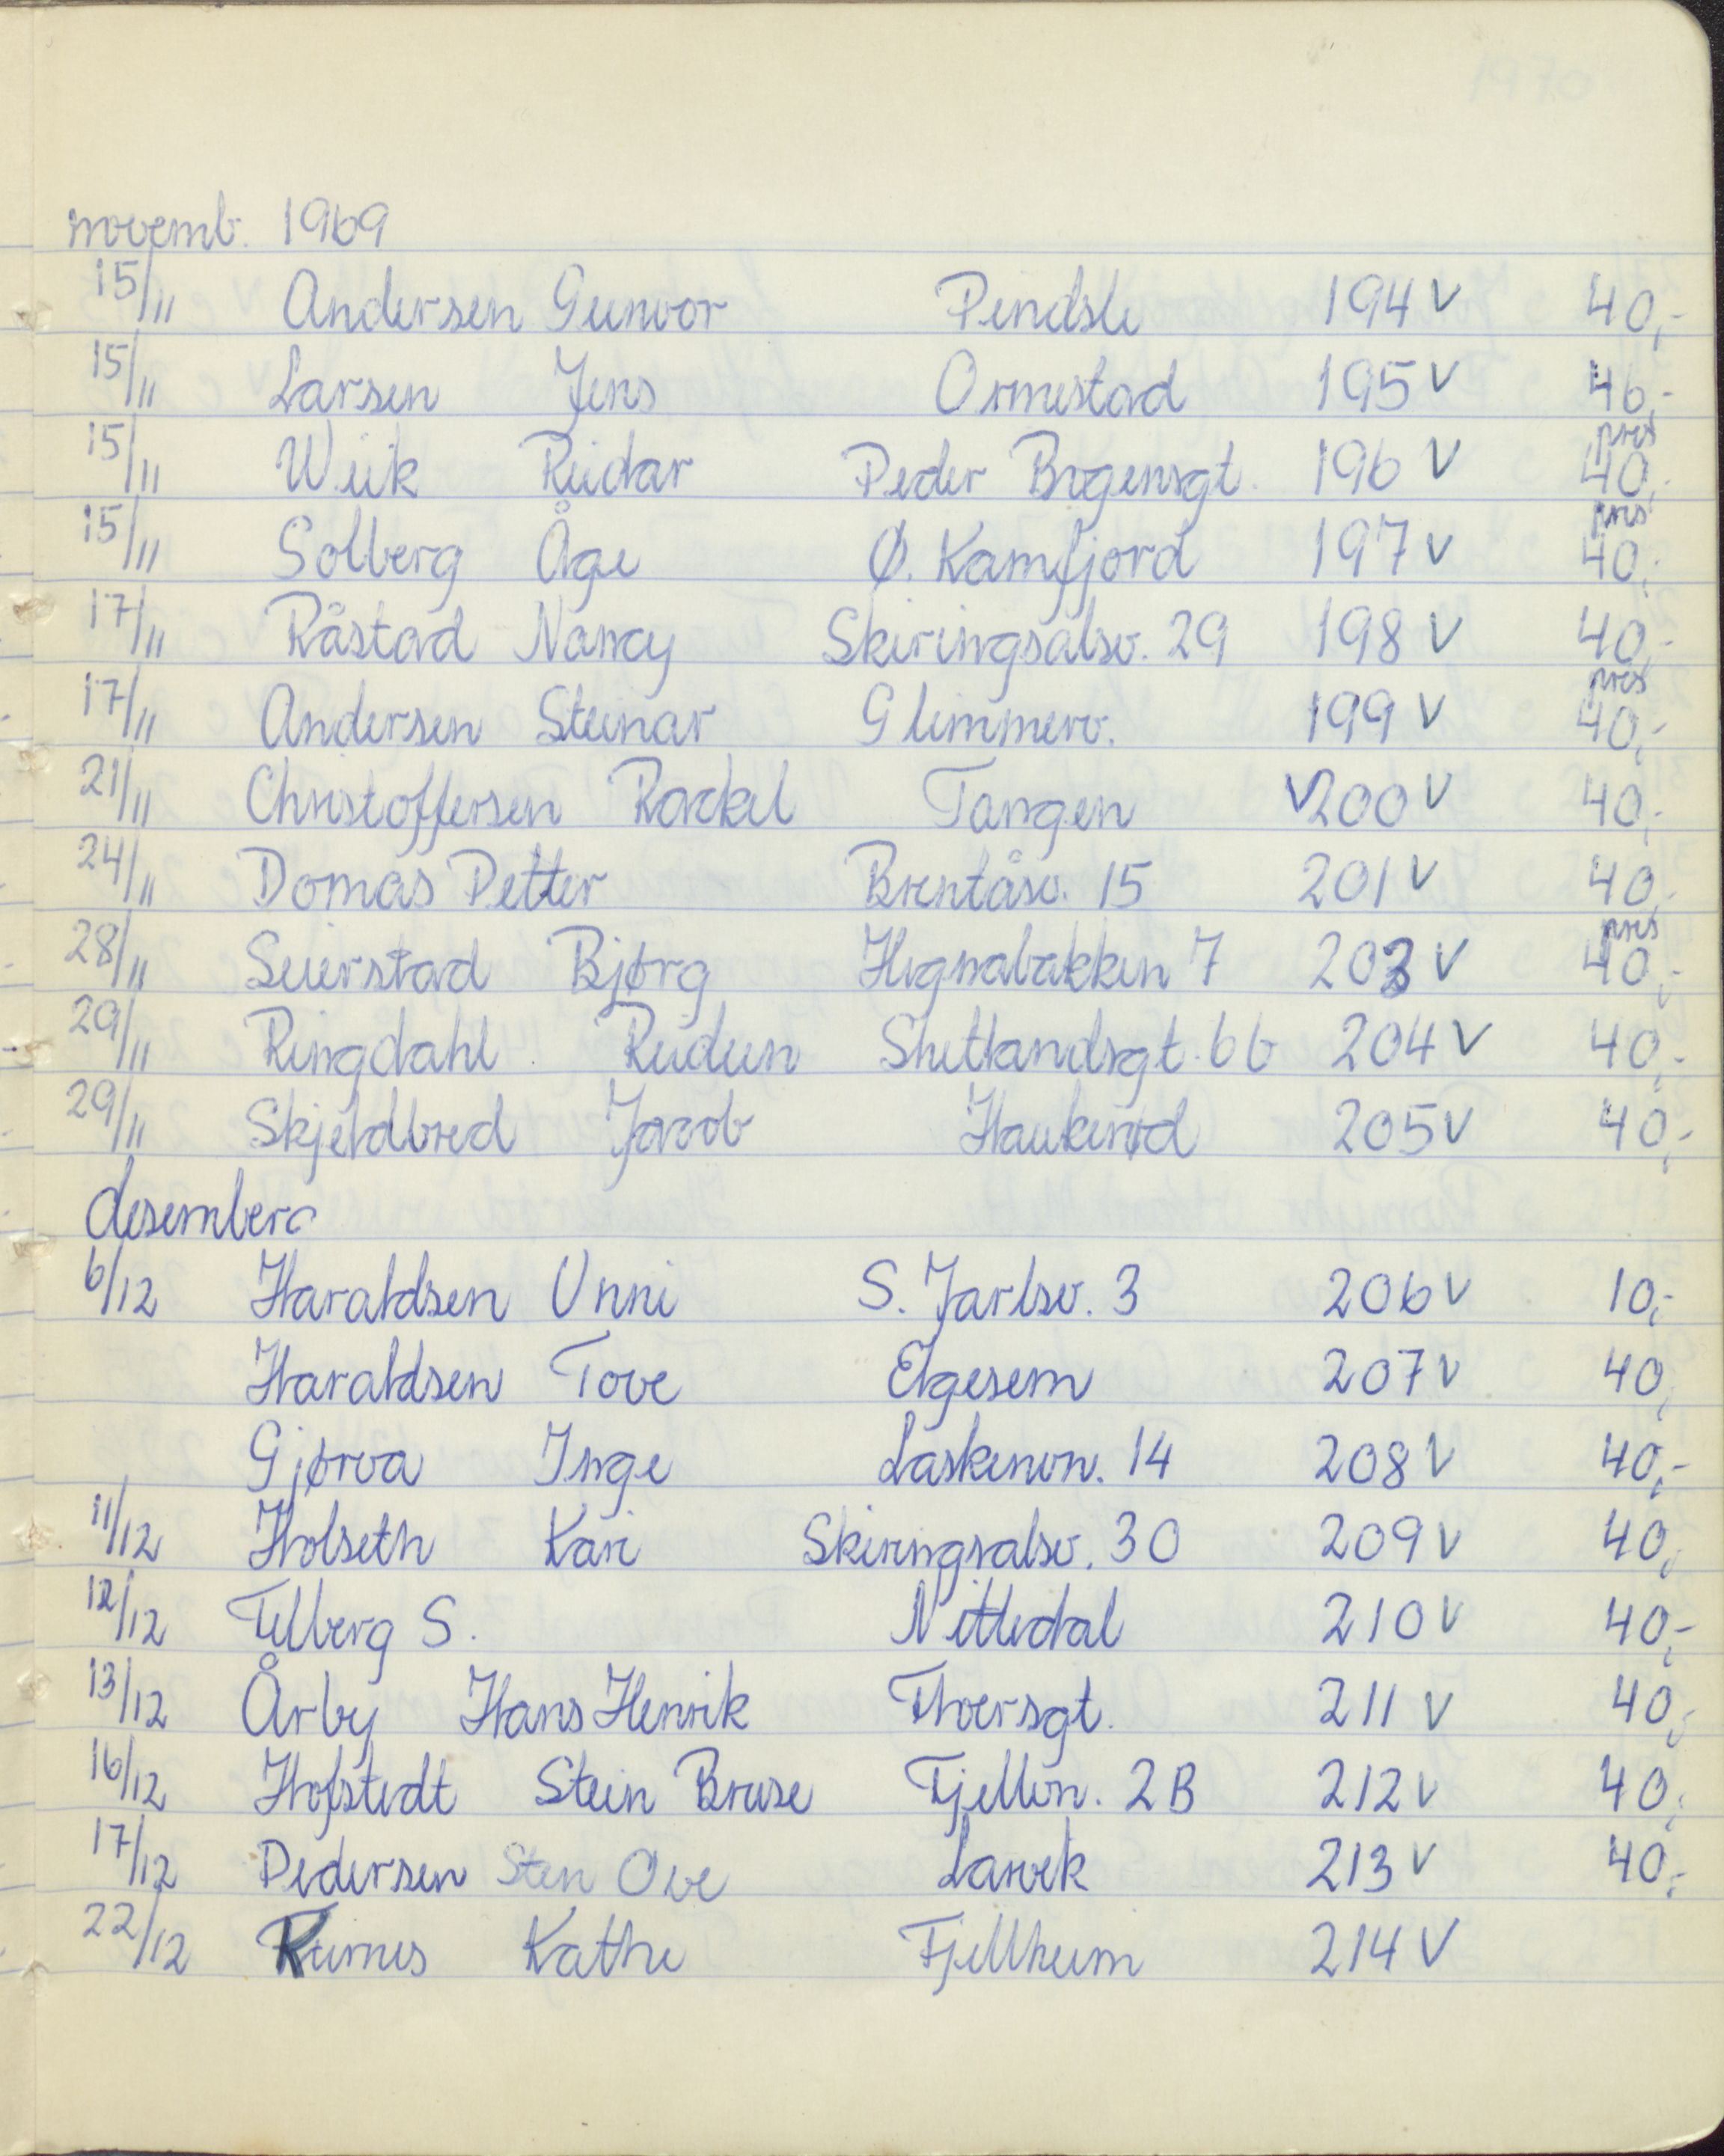 novemb. 1969
15/11 Andersen Gunvor Pindsle 194 v 40,-
15/11 Larsen Jens Ormestad 195 v 40,-
15/11 Weik Reidar Peder Bogensgt. 196 v pres 40,-
15/11 Solberg Åge Ø. Kamfjord 197 v pres 40,-
17/11 Råstad Nancy Skiringsalsv. 29 198 v 40,-
17/11 Andersen Steinar Glimmerv. 199 v pres 40,-
21/11 Christoffersen Rackel Tangen v 200 v 40,-
24/11 Domas Petter Brentåsv. 15 201 v 40,-
28/11 Seierstad Bjørg Hegnabakken 7 203 v pres 40,-
29/11 Ringdahl Reidun Shetlandsgt. 6 b 204 v 40,-
29/11 Skjeldbred Jacob Haukerød 205 v 40,-
desember
6/12 Haraldsen Unni S. Jarlsv. 3 206 v 10,-
Haraldsen Tove Elgesem 207 v 40,
Gjørva Inge Laskenvn. 14 208 v 40,-
11/12 Holseth Kari Skiringsalsv. 30 209 v 40,
12/12 Tellberg S. Nittedal 210 v 40,-
13/12 Årby Hans Henrik Thversgt. 211 v 40,
16/12 Hofstedt Stein Bruse Fjellvn. 2B 212 v 40,
17/12 Pedersen Sten Ove Larvik 213 v 40,-
22/12 Reirnes Kathe Fjellheim 214 v